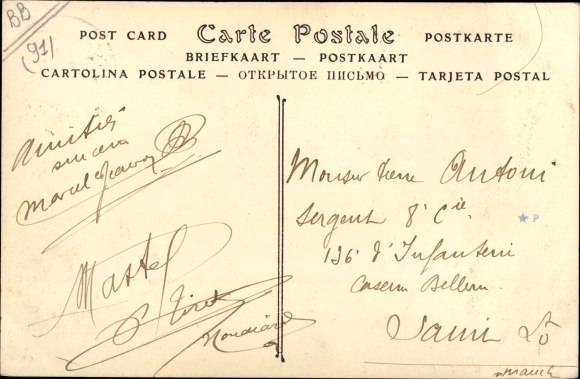 BB
(91)
POST CARD Carte Postale POSTKARTE
BRIEFKAART — POSTKAART
CARTOLINA POSTALE — ОТКРЫТОЕ ПИСЬМО — TARJETA POSTAL
Amitiés
sincères
Marcel
Martel
Monsieur Pierre Antoni
Sergent 8e Cie
136e d'Infanterie
Caserne Bellevue
Saint Lô
Manche
P